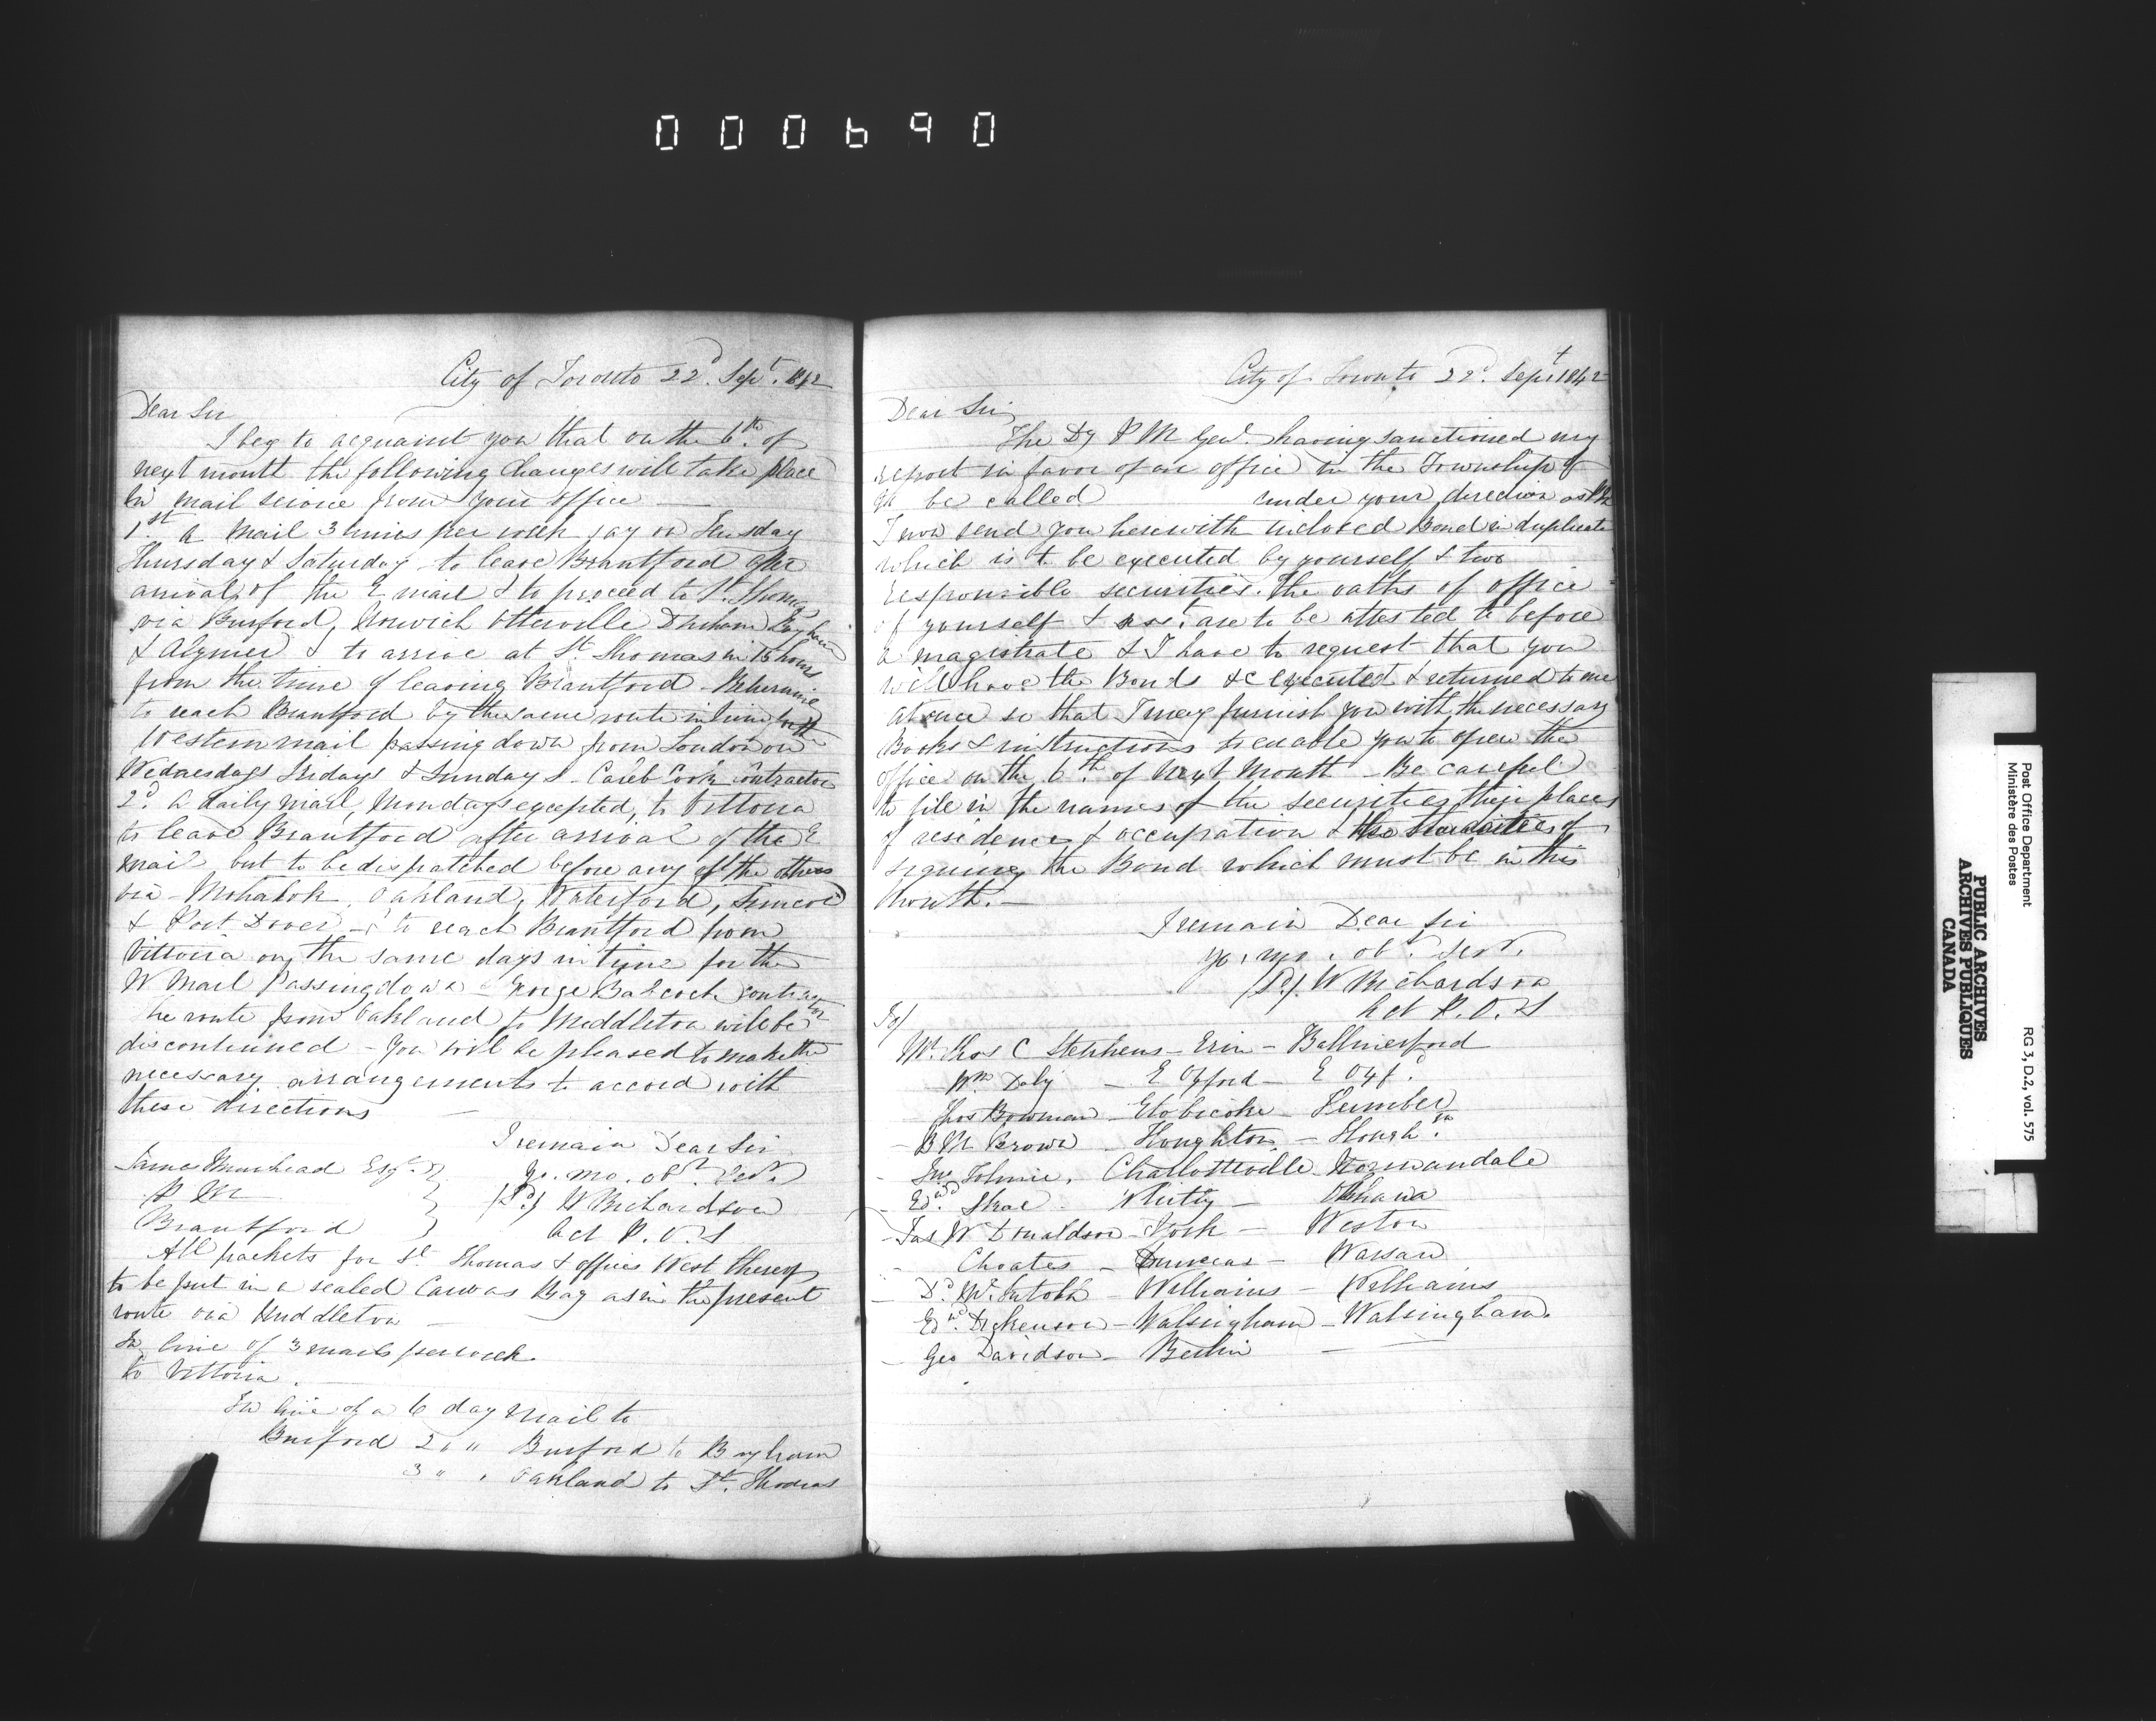 000690
City of Toronto 22d. Sept. 1842
Dear Sir
I beg to acquaint you that on the 6th. of
next month the following Changes will take place
in mail service from your office —
1st. A Mail 3 times per week say on Tuesday
Thursday & Saturday - to leave Brantford after
arrival of the E mail & to proceed to St. Thomas
via Burford, Norwich Otterville Dereham Bayham
& Alymer & to arrive at St. Thomas in 15 hours
from the time of leaving Brantford - Returning
to reach Brantford by the same route in time for the
Western mail passing down from London on
Wednesdays Fridays & Sundays - Caleb Cook contractor
2d. A daily Mail, Mondays excepted, to Vittoria
to leave Brantford after arrival of the E
mail but to be dispatched before any of the others
via - Mohawk, Oakland, Waterford, Simcoe
& Port Dover - & to reach Brantford from
Vittoria on the same days in time for the
W Mail Passing down - George Babcock contractor
The route from Oakland to Middleton will be
discontinued - You will be pleased to make the
necessary arrangements to accord with
these directions —
I remain Dear Sir
James Muirhead Esqr.
Yr. mo. obt. Sert.
P M
(Sd.) W Richardson
Brantford
Act P. O. S
All packets for St. Thomas & offices West thereof
to be put in a sealed Canvas Bag as in the present
route via Middleton —
In lieu of 3 mails per week
to Vittoria.
In lieu of a 6 day Mail to
Burford 2 " " Burford to Bayham
3 " " Oakland to St. Thomas
City of Toronto 22d. Sept 1842
Dear Sir
The Dy P M Genl. having sanctioned my
report in favor of an office in the Township of
to be called under your direction as PM
I now send you herewith inclosed Bond in duplicate
which is to be executed by yourself & two
responsible securities. The oaths of office
of yourself & asst. are to be attested to before
a magistrate & I have to request that you
will have the Bonds &c executed & returned to me
at once so that I may furnish you with the necessary
Books & instructions to enable you to open the
office on the 6th. of Next Month - Be careful
to file in the names of the securities their places
of residence & occupation & the of
signing the Bond which must be in this
Month. —
I remain Dear Sir
yr. mo. obt. Sert.
(Sd.) W Richardson
Act P. O. S
To/
Mr. Thos C Stephens - Erin - Ballinerford
Wm Daly - E Oxford - E Oxfd.
Thos Bowman - Etobicoke - Humber
B M Brown - Houghton - Hough.tn
Jno Tolmie. Charlotteville Normandale
Edwd. Skae Whitby - Oshawa
Jas W Donaldson - York - Weston
Choates - Dummer - Warsaw
Dd. McIntosh - Williams - Williams
Edwd. Dickenson - Walsingham - Walsingham.
Geo Davidson - Berlin —
Post Office Department
Ministère des Postes
RG 3, D.2, vol. 575
PUBLIC ARCHIVES
ARCHIVES PUBLIQUES
CANADA